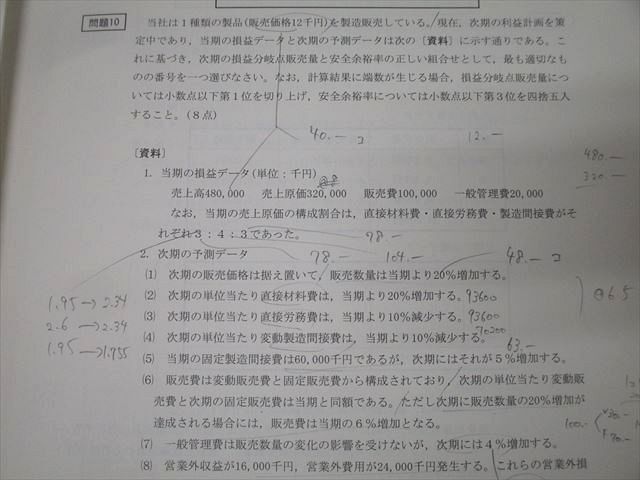 問題10
当社は１種類の製品(販売価格12千円)を製造販売している。現在，次期の利益計画を策
定中であり，当期の損益データと次期の予測データは次の〔資料〕に示す通りである。こ
れに基づき，次期の損益分岐点販売量と安全余裕率の正しい組合せとして，最も適切なも
のの番号を一つ選びなさい。なお，計算結果に端数が生じる場合，損益分岐点販売量につ
いては小数点以下第１位を切り上げ，安全余裕率については小数点以下第３位を四捨五入
すること。(８点)
40.― コ
12.―
480.―
320.―
〔資料〕
１．当期の損益データ(単位：千円)
売上高480,000　売上原価320,000　販売費100,000　一般管理費20,000
なお，当期の売上原価の構成割合は，直接材料費・直接労務費・製造間接費がそ
れぞれ３：４：３であった。
98.―
２．次期の予測データ
78.―
104.―
48.― コ
(1)　次期の販売価格は据え置いて，販売数量は当期より20％増加する。
(2)　次期の単位当たり直接材料費は，当期より20％増加する。
93600
1.95→2.34
(3)　次期の単位当たり直接労務費は，当期より10％減少する。
93600
2.6→2.34
(4)　次期の単位当たり変動製造間接費は，当期より10％減少する。
70200
1.95→1.755
63.―
@65
(5)　当期の固定製造間接費は60,000千円であるが，次期にはそれが５％増加する。
(6)　販売費は変動販売費と固定販売費から構成されており，次期の単位当たり変動販
売費と次期の固定販売費は当期と同額である。ただし次期に販売数量の20％増加が
達成される場合には，販売費は当期の６％増加となる。
100.―
(7)　一般管理費は販売数量の変化の影響を受けないが，次期には４％増加する。
(8)　営業外収益が16,000千円，営業外費用が24,000千円発生する。これらの営業外損